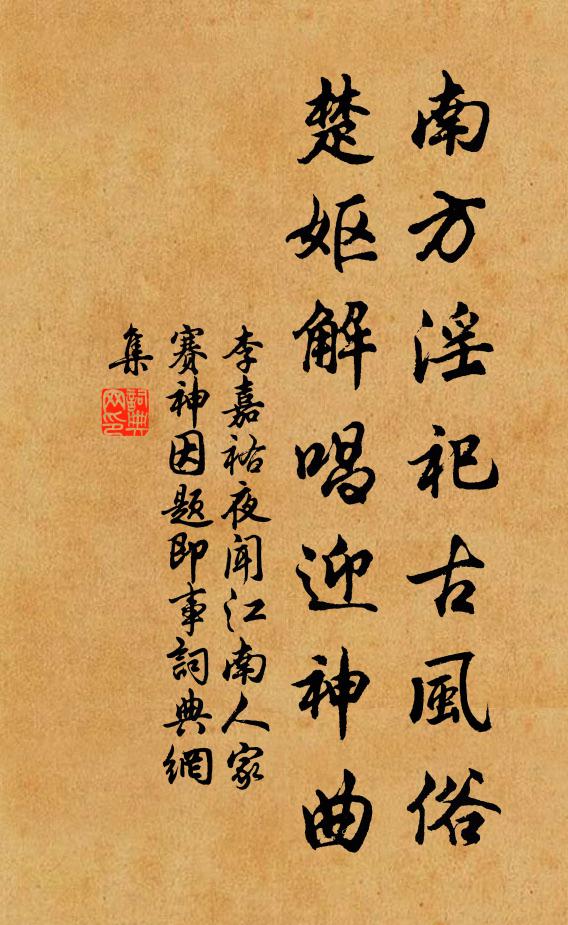 南方淫祀古風俗
楚妪解唱迎神曲
李嘉祐夜闻江南人家
賽神因题即事詞典網
集
詞典
网印